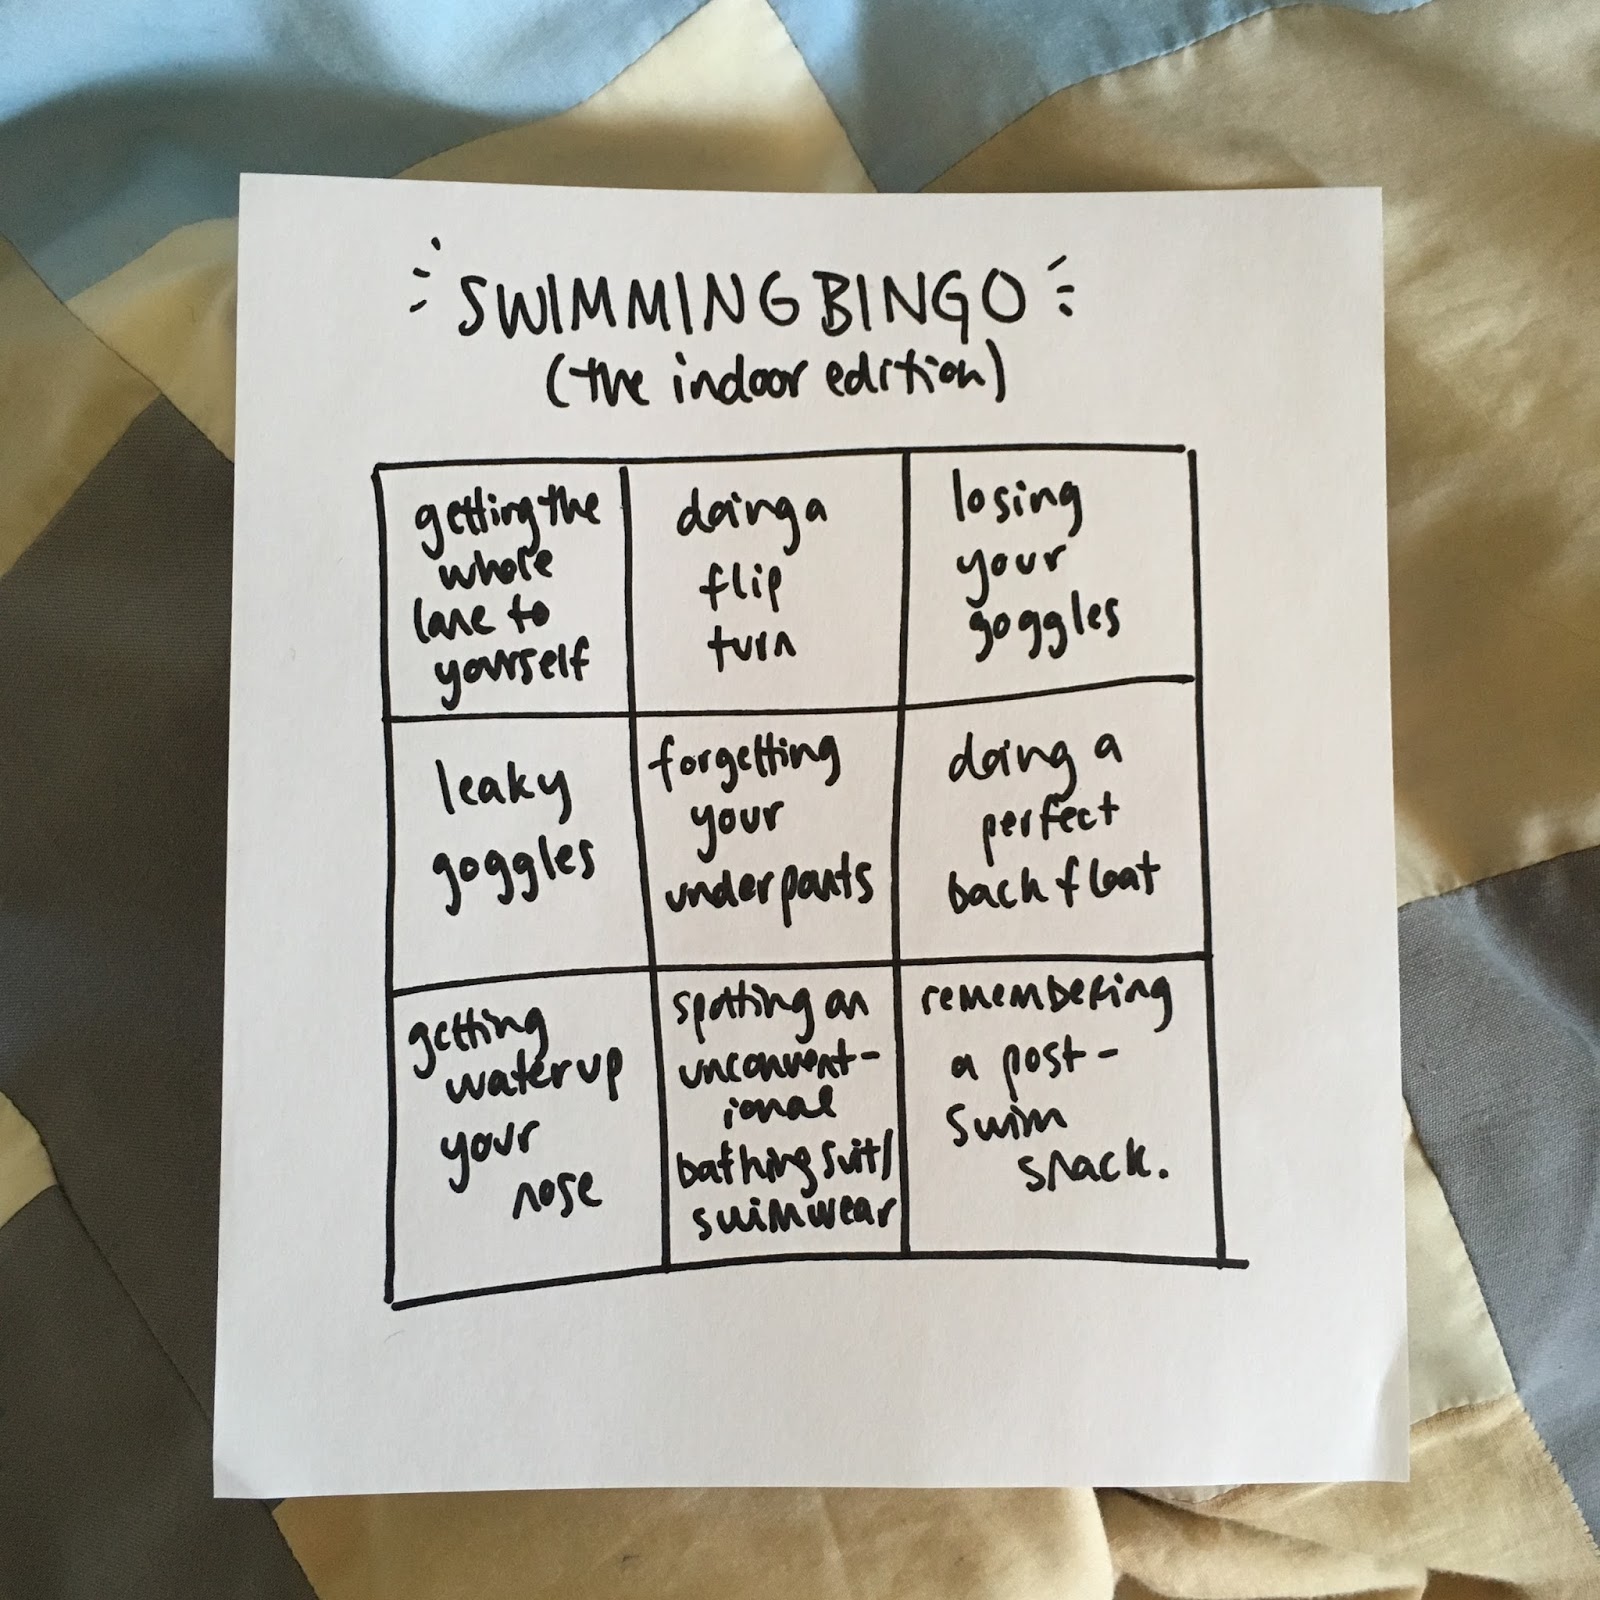 SWIMMING BINGO
(the indoor edition)
getting the
whole
lane to
yourself
doing a
flip
turn
losing
your
goggles
leaky
goggles
forgetting
your
underpants
doing a
perfect
back float
getting
water up
your
nose
spotting an
unconvent-
ional
bathing suit/
swimwear
remembering
a post-
swim
snack.